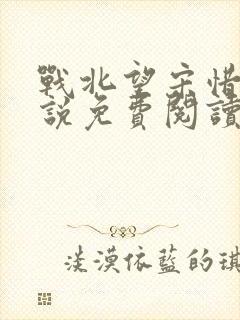 戰北望宋惜
說免費閱讀
淡漠依藍的琪